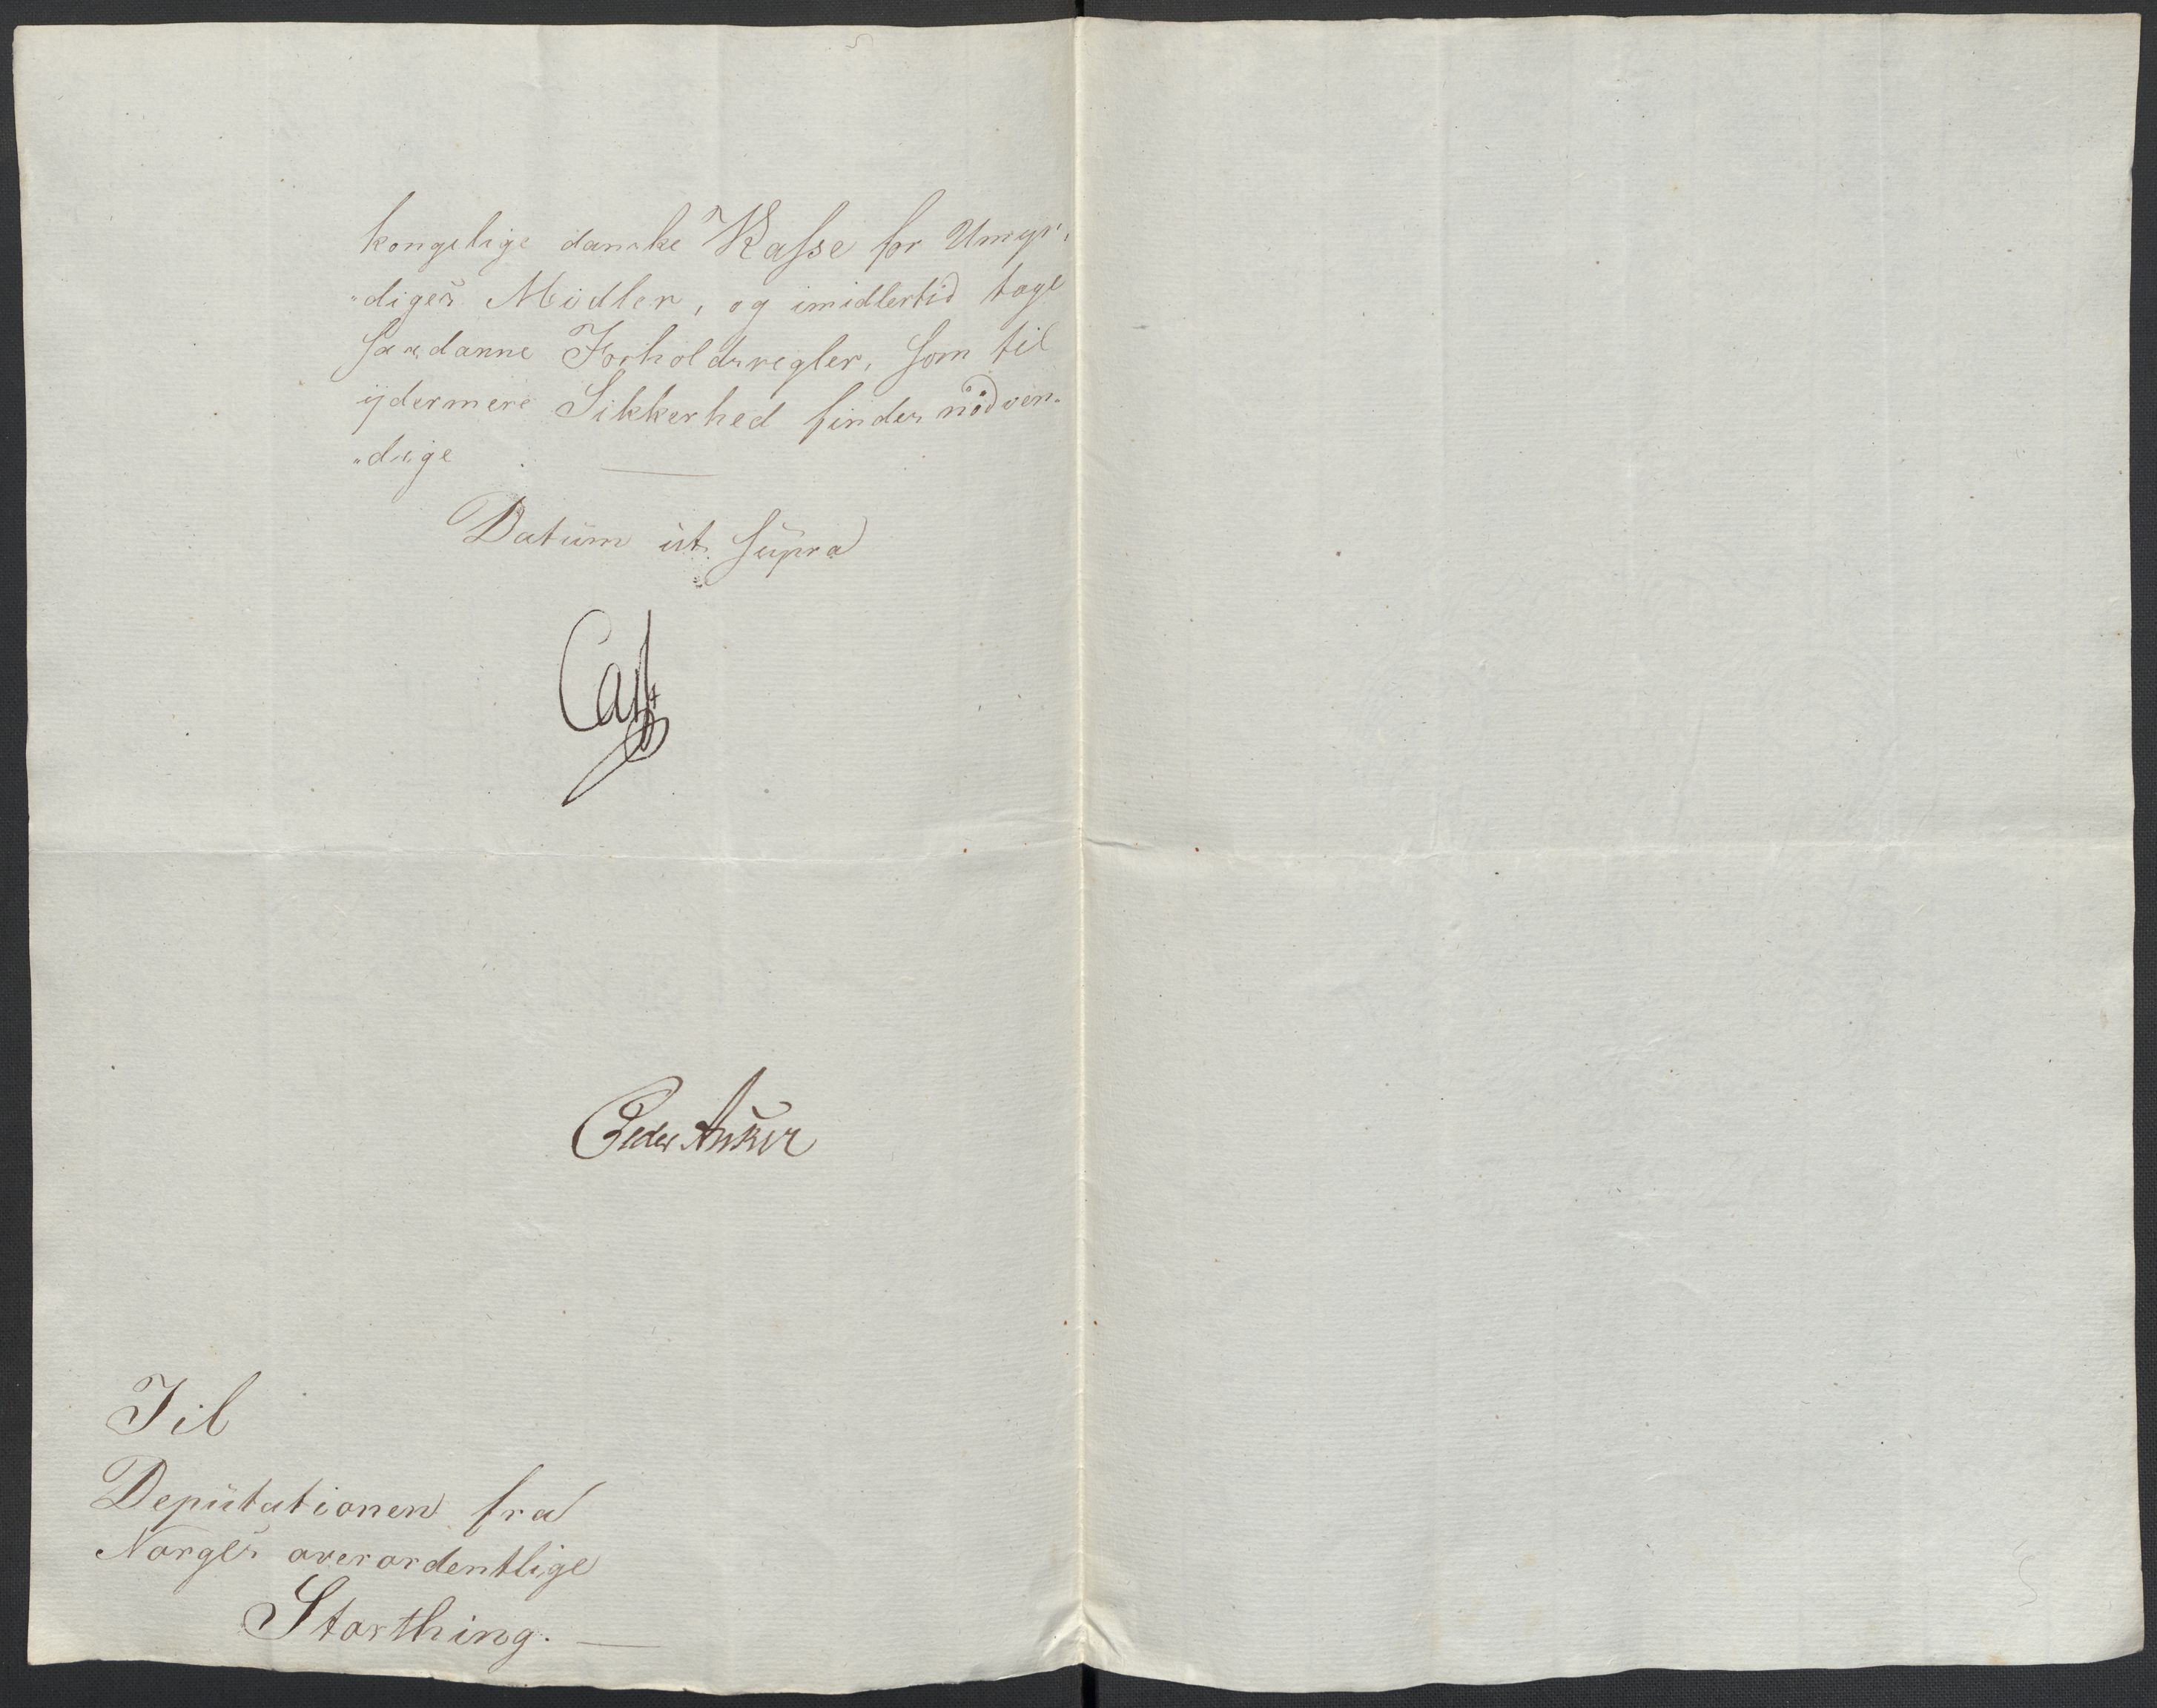 kongelige danske Kasse for Umyn-
"diges Midler, og imidlertid tage
saadanne Forholdsregler, som til
ÿdermere Sikkerhed findes nödven-
"dige
Datum ut supra
Carl
Peder Anker
Til
Deputationen fra
Norges overordentlige
Storthing.